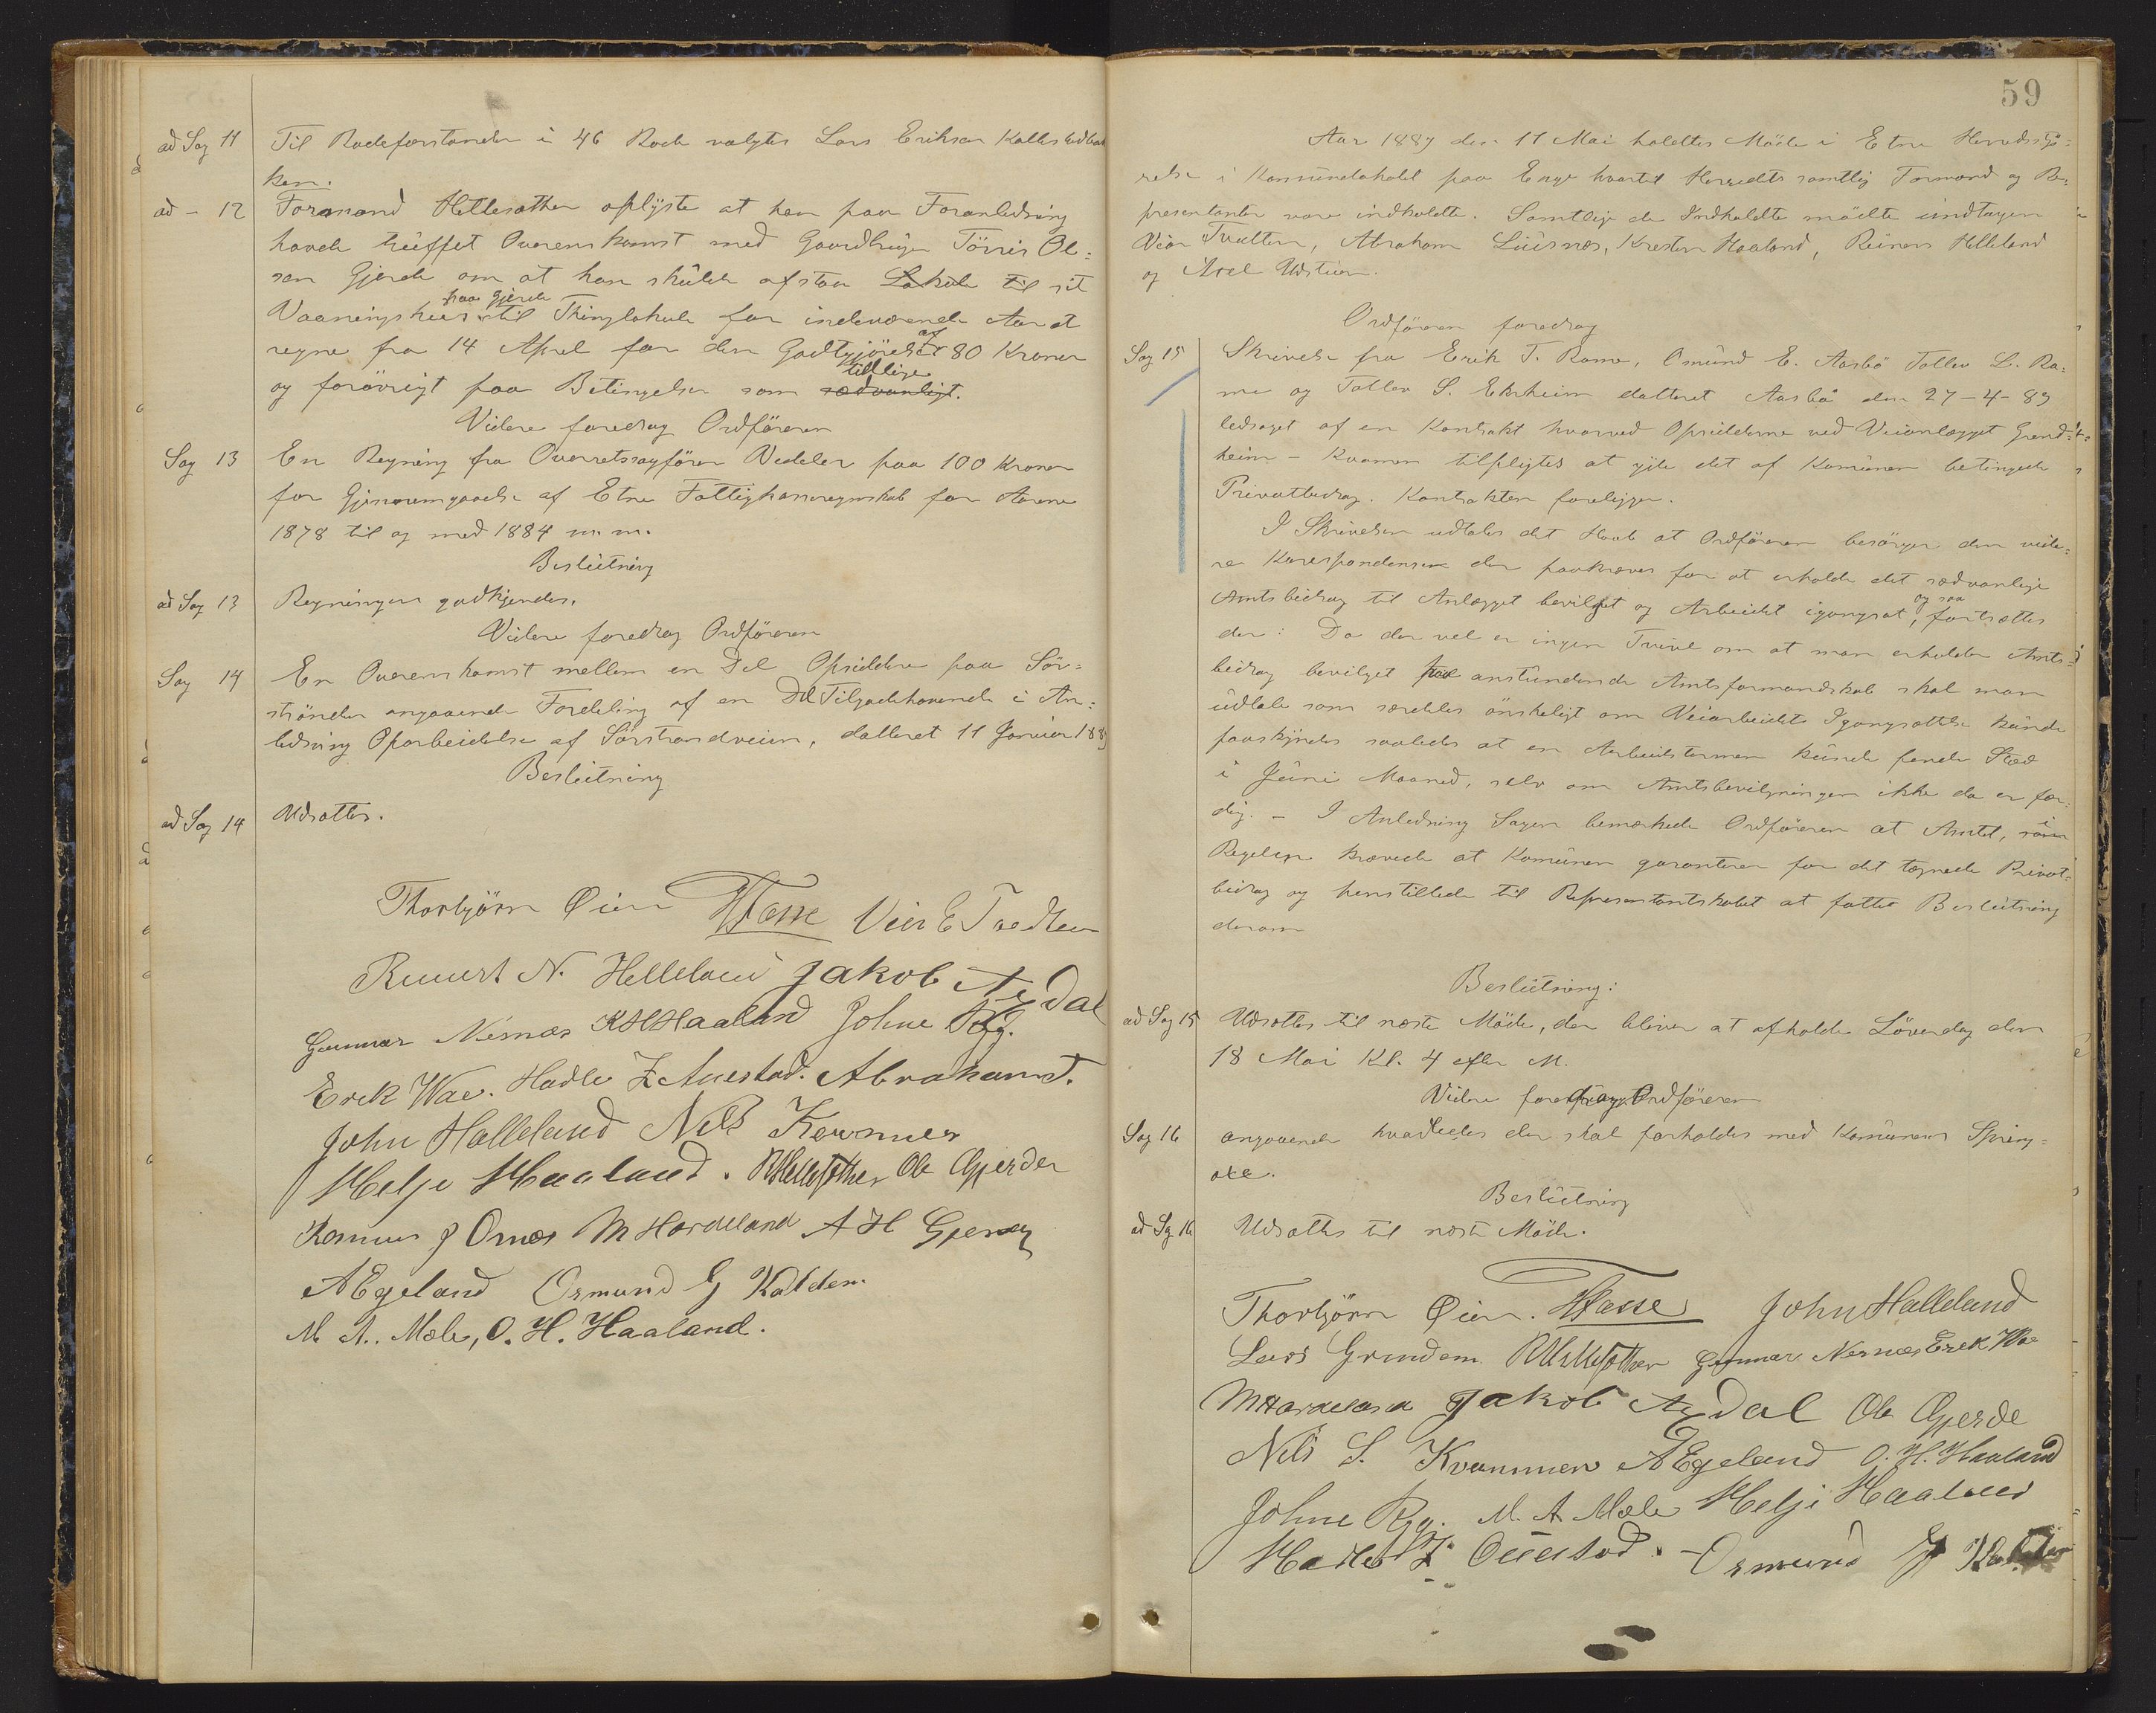 ad Sag 11 Til Rodeforstander i 46 Rode valgtes Lars Eriksen
ken.
ad - 12 Formand Hellesæther oplyste at han paa Foranledning
havde trüffet Overenskomst med Gaardbruger Törris Ol=
sen Gjerde om at han skulde afstaa Lokale til sit
Vaaningshuus paa Gjerde til Thinglokale for indeværende Aar at
regne fra 14 April for den Godtgjörelse af 80 Kroner
og forövrigt paa Betingelser som tidligere sædvanligt.
Videre foredrog Ordföreren
Sag 13 En Regning fra Overretssagförer Vedeler paa 100 Kroner
for Gjennemgaaelse af Etne Fattigkasseregnskab for Aarene
1878 til og med 1884 m. m.
Beslutning
ad Sag 13 Regningen godkjendes.
Videre foredrog Ordföreren
Sag 14 En Overenskomst mellem en Del Opsiddere paa Sör=
stranden angaaende Fordeling af en Del Tilgodehavende i An=
ledning Oparbeidelse af Sörstrandveien, datteret 11 Januar 1889
Beslutning
ad Sag 14 Udsættes.
Thorbjörn Øien Fasse Vier E Tvedten
Reinert N. Helleland Jakob Aadal
Gunnar Nernæs KHHaaland Johne Rygg.
Erik Wae. Hadle Z Auestad. Abraham T.
John Halleland Nils Kvammen
Helje Haaland. RHellesæther Ole Gjerde
Rasmus J Ornes MHardeland A H Gjerde
AEgeland Osmund G Kalden
M A. Mæle, O. H. Haaland.
59
Aar 1889 den 11 Mai holdtes Möde i Etne Herredssty=
relse i Komunelokalet paa Enge hvortil Herredets samtlige Formænd og Re=
presentanter vare indkaldte. Samtlige de Indkaldte mödte undtagen
Vier Tvedten, Abraham Lüsnæs, Kresten Haaland, Reinert Helleland
og Axel
Ordföreren foredrog
Sag 15 Skrivelse fra Erik T. Rame, Osmund E. Aasbö Tollev L. Ra=
me og Tollev S. Ekrheim datteret Aasbö den 27-4-89
ledsaget af en Kontrakt hvorved Opsidderne ved Veianlægget Grind=
heim - Kvamen tilpligtes at yde det af Komunen betingede
Privatbidrag. Kontrakten foreligger.
I Skrivelsen udtales det Haab at Ordföreren besörger den vide=
re Korespondense der paakræves for at erholde det sædvanlige
Amtsbidrag til Anlægget bevilget og Arbeidet igangsat, og saa fortsættes
der: Da der vel er ingen Tvivl om at man erholder Amts=
bidrag bevilget paa anstundende Amtsformandskab skal man
udtale som særdeles önskeligt om Veiarbeidets Igangsættelse kunde
paaskyndes saaledes at en Arbeidstermen kunde finde Sted
i Juni Maaned, selv om Amtsbevilgningen ikke da er fær=
dig. - I Anledning Sagen bemærkede Ordföreren at Amtet, i
Regelen krævede at Komunen garanterer for det tegnede Privat=
bidrag og henstillede til Representantskabet at fatte Beslutning
derom
Beslutning:
ad Sag 15 Udsættes til næste Möde, der bliver at afholde Löverdag den
18 Mai Kl. 4 efter M.
Videre foredrog Ordföreren
Sag 16 angaaende hvorledes der skal forholdes med Komunens Spring=
oxe.
Beslutning
ad Sag 16 Udsættes til næste Möde.
Thorbjörn Øien. Fasse John Halleland
Lars Grindem RHellesæther Gunnar Nernæs Erik Wae
MHardeland Jakob Aadal Ole Gjerde
Nils S. Kvammen AEgeland O. H. Haaland
Johne Rygg. M. A Mæle Helje Haaland
Hadle Z Auestad. Osmund G Kalden